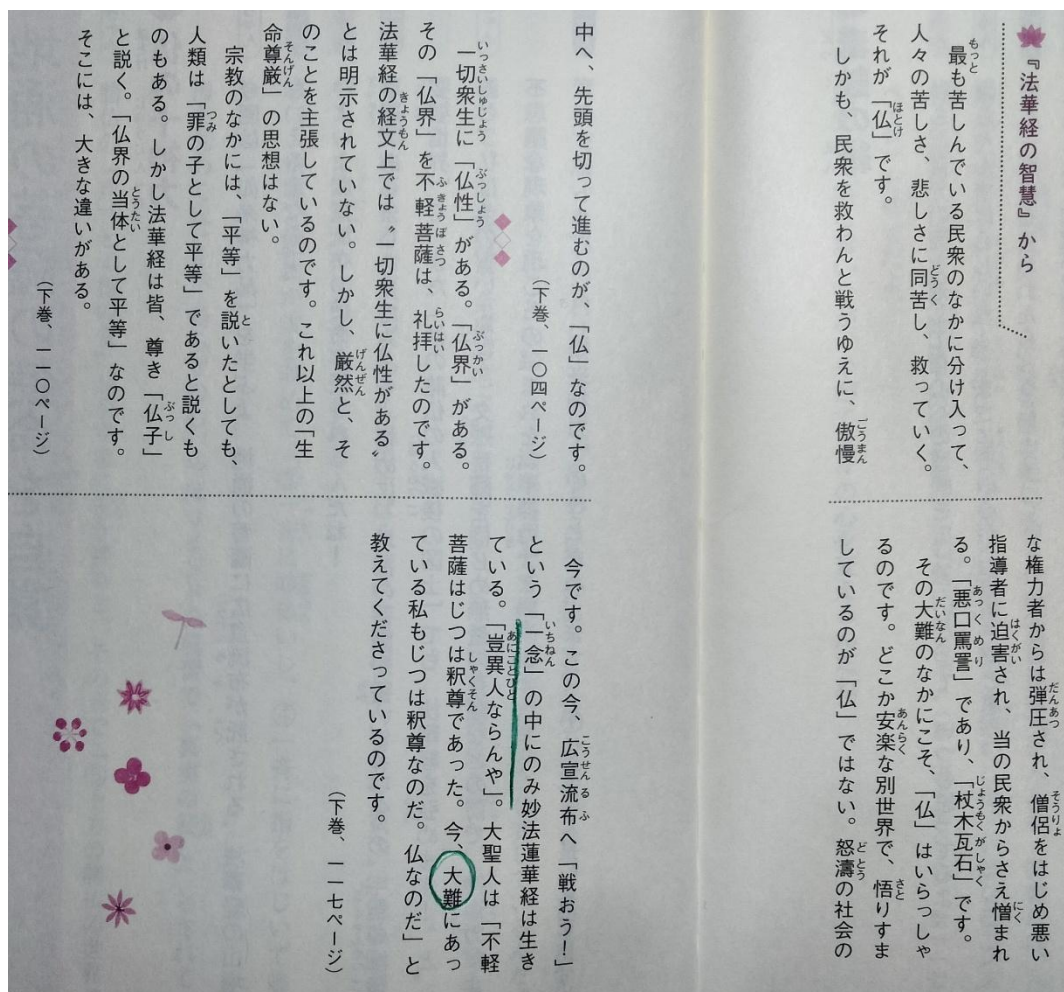 『法華経の智慧』から
最も苦しんでいる民衆のなかに分け入って、
人々の苦しさ、悲しさに同苦し、救っていく。
それが「仏」です。
しかも、民衆を救わんと戦うゆえに、傲慢
な権力者からは弾圧され、僧侶をはじめ悪い
指導者に迫害され、当の民衆からさえ憎まれ
る。「悪口罵詈」であり、「杖木瓦石」です。
その大難のなかにこそ、「仏」はいらっしゃ
るのです。どこか安楽な別世界で、悟りすま
しているのが「仏」ではない。怒濤の社会の
中へ、先頭を切って進むのが、「仏」なのです。
（下巻、一〇四ページ）
一切衆生に「仏性」がある。「仏界」がある。
その「仏界」を不軽菩薩は、礼拝したのです。
法華経の経文上では〝一切衆生に仏性がある〟
とは明示されていない。しかし、厳然と、そ
のことを主張しているのです。これ以上の「生
命尊厳」の思想はない。
宗教のなかには、「平等」を説いたとしても、
人類は「罪の子として平等」であると説くも
のもある。しかし法華経は皆、尊き「仏子」
と説く。「仏界の当体として平等」なのです。
そこには、大きな違いがある。
（下巻、一一〇ページ）
今です。この今、広宣流布へ「戦おう！」
という「一念」の中にのみ妙法蓮華経は生き
ている。「豈異人ならんや」。大聖人は「不軽
菩薩はじつは釈尊であった。今、大難にあっ
ている私もじつは釈尊なのだ。仏なのだ」と
教えてくださっているのです。
（下巻、一一七ページ）